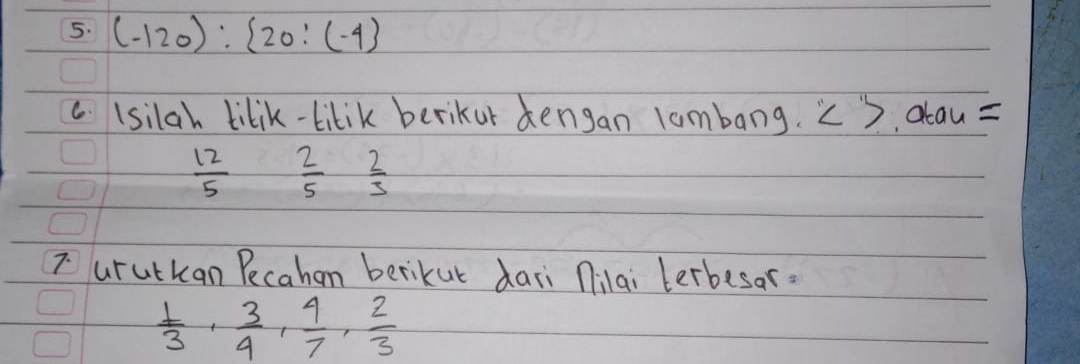 5. (-120) : {20 : (-4}
6. Isilah titik-titik berikut dengan lambang. "< ">, atau =
12/5 2/5 2/3
7. urutkan Pecahan berikut dari Nilai terbesar.
1/3, 3/4, 4/7, 2/3